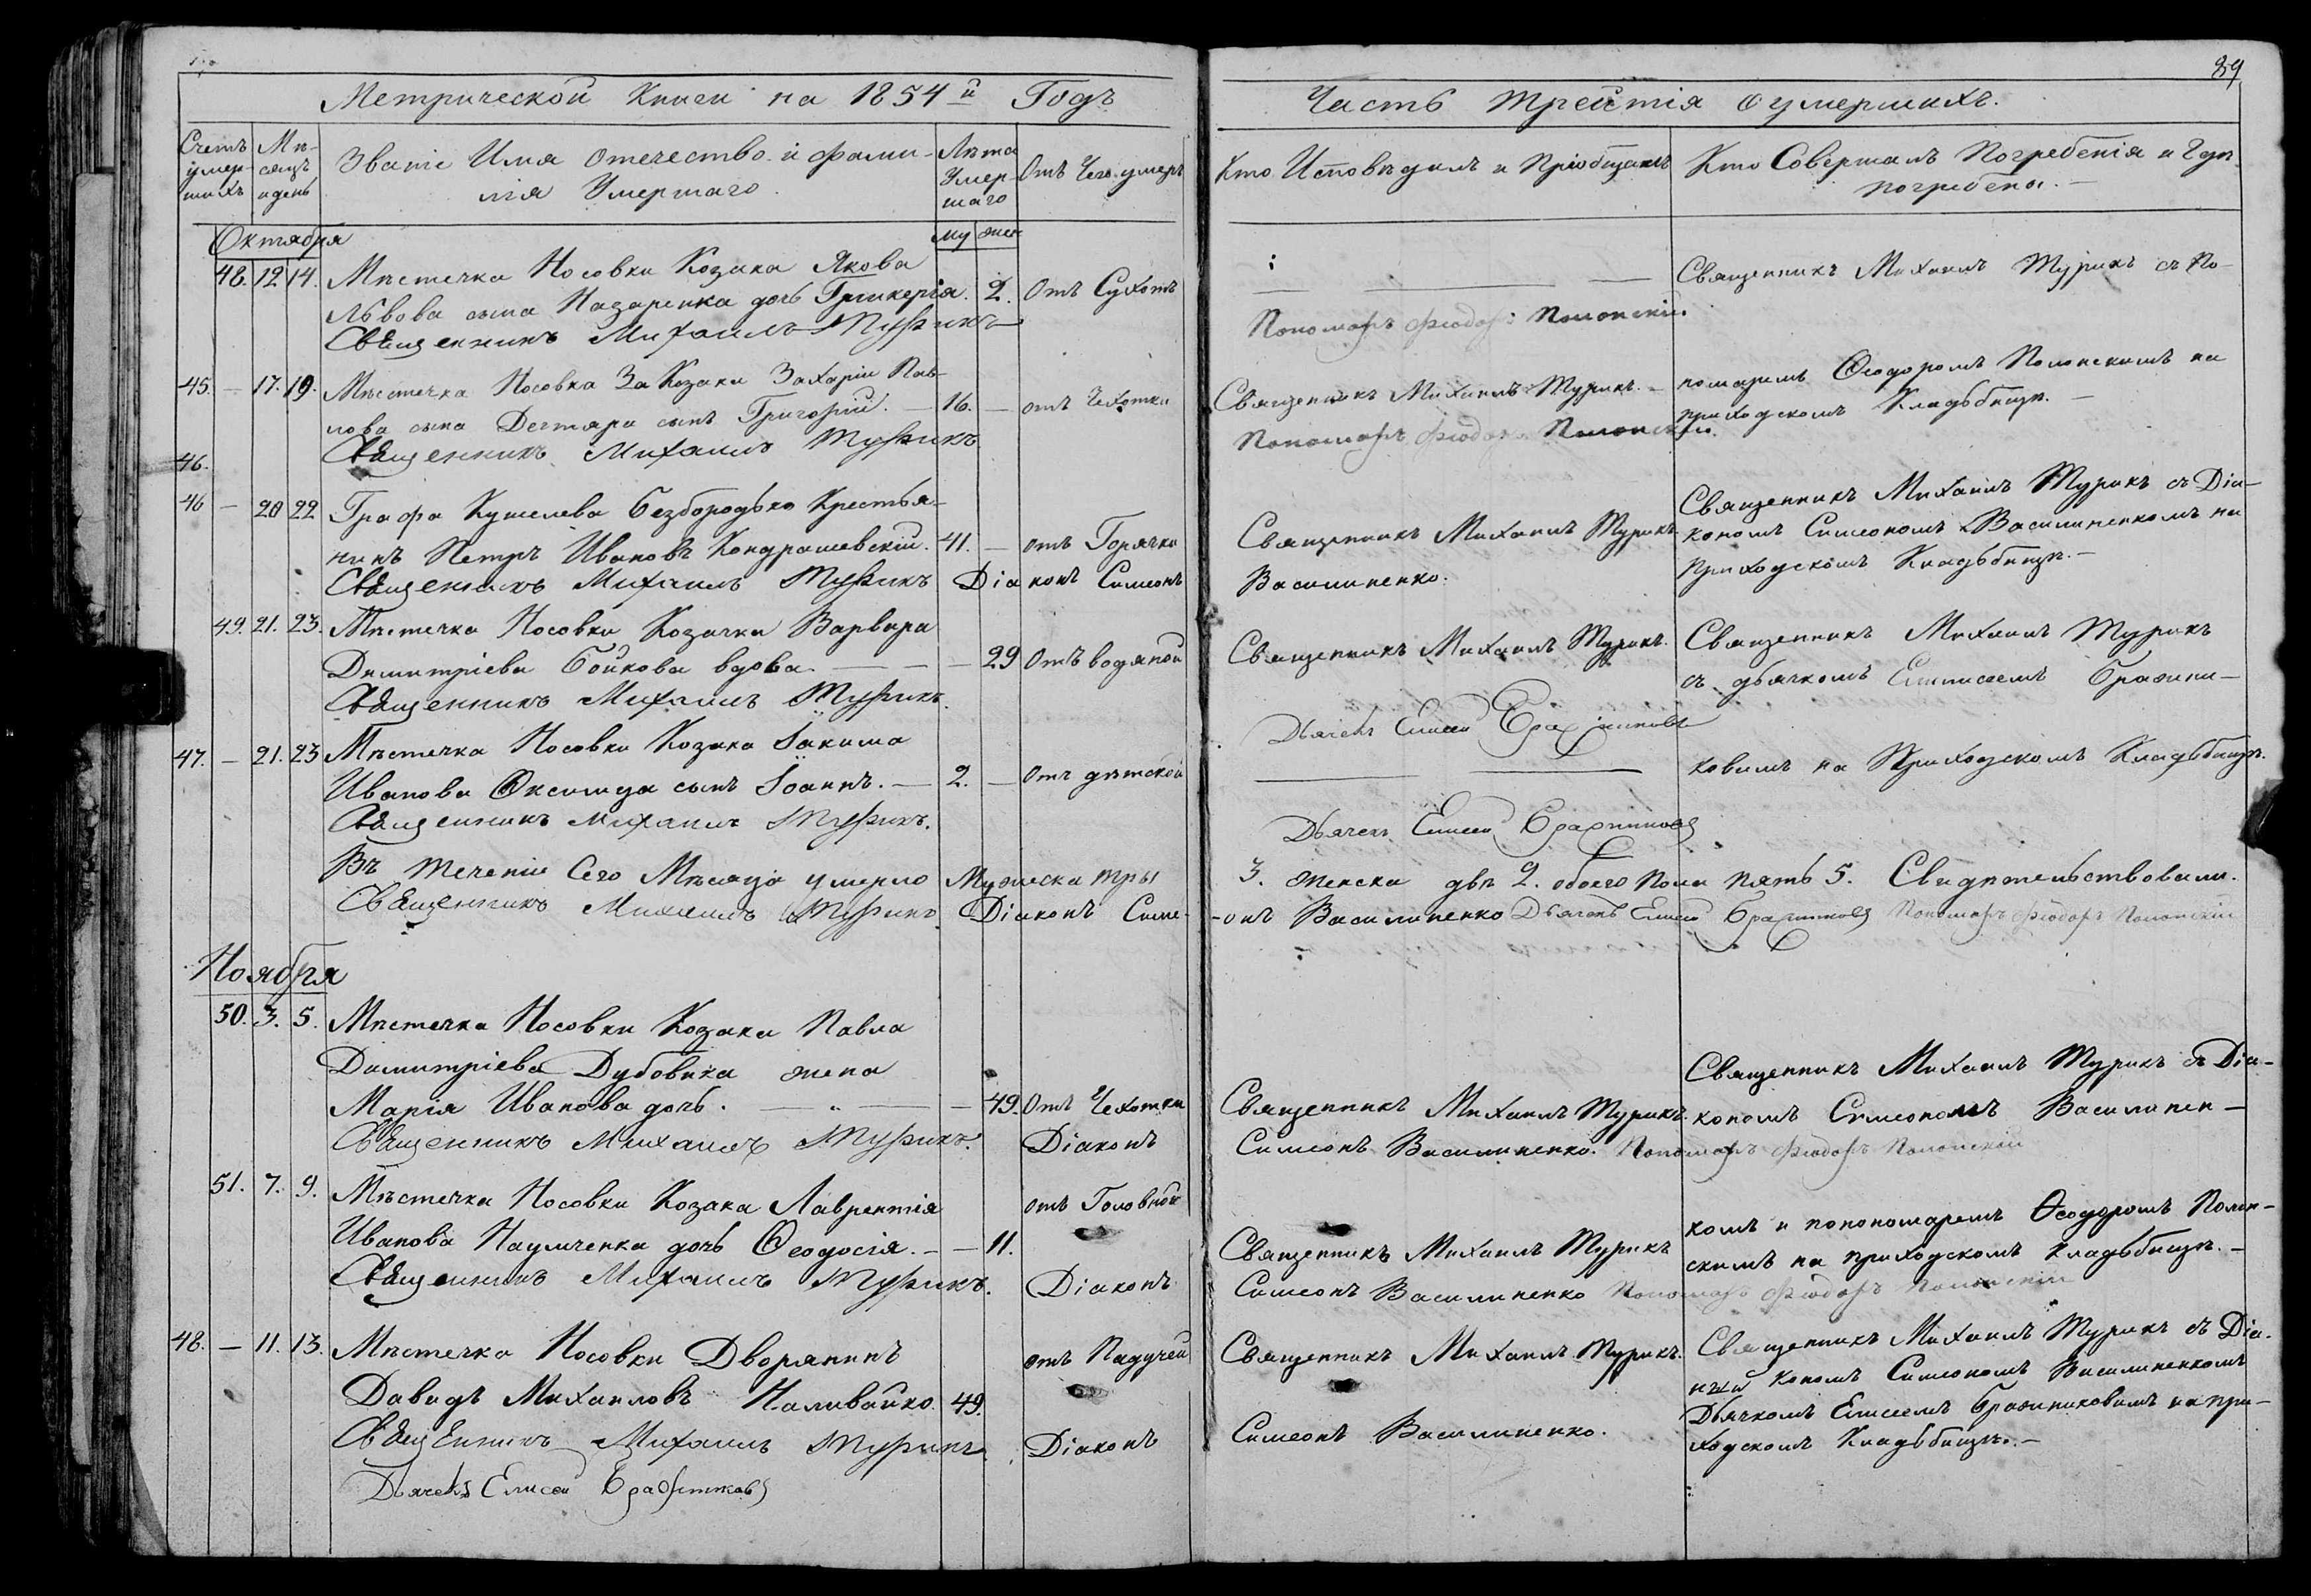 89
Метрической Книги на 1854й Годъ
Часть третія о умершихъ.
Счетъ умершихъ
Мѣсяцъ и день
Званіе Имя отечество и фами-
лія Умершаго.
Лѣта Умер-
шаго
Отъ Чего умеръ
Кто Исповѣдалъ и Пріобщалъ
Кто Совершалъ Погребенія и Гдѣ
погребены.
Октября
му жен
48. 12 14. Мѣстечка Носовки Козака Якова
Львова сына Назаренка дочь Гликерія. 2. Отъ Сухотъ
Священникъ Михаилъ Турикъ
Священникъ Михаилъ Турикъ съ По-
Пономарь Фіодоръ Полонскій.
45. — 17. 19. Мѣстечка Носовка За Козаки Захарія Пав-
лова сына Дегтяра сынъ Григорій. — 16. — отъ Чехотки
Священникъ Михаилъ Турикъ
Священникъ Михаилъ Турикъ. —
Пономарь Фіодоръ Полонскій.
номаремъ Ѳеодоромъ Полонскимъ на
приходскомъ Кладьбищѣ. —
46.
46 — 20 22 Графа Кушелева Безбородько Крестья-
нинъ Петръ Ивановъ Кондрашевскій. 41. — отъ Горячки
Священникъ Михаилъ Турикъ Діаконъ Симеонъ
Священникъ Михаилъ Турикъ
Василиненко.
Священникъ Михаилъ Турикъ съ Діа-
кономъ Симеономъ Василиненкомъ на
приходскомъ Кладьбищѣ. —
49. 21. 23. Мѣстечка Носовки Козачка Варвара
Димитріева Бойкова вдова. — — — 29 Отъ водяной
Священникъ Михаилъ Турикъ.
Священникъ Михаилъ Турикъ.
Дьячекъ Елисей Бражниковъ
Священникъ Михаилъ Турикъ
съ дьячкомъ Елисеемъ Бражни-
47. — 21. 23 Мѣстечка Носовки Козака Іакима
Иванова Оксимца сынъ Іоаннъ. — 2. — Отъ дѣтской
Священникъ Михаилъ Турикъ.
Дьячекъ Елисей Бражниковъ
ковымъ на Приходскомъ Кладьбищѣ.
Въ теченіи Сего Мѣсяца умерло Мужеска тры
3. женска двѣ 2. обоего пола пять 5. Свидѣтельствовали.
Священникъ Михаилъ Турикъ Діаконъ Симе-
-онъ Василиненко Дьячекъ Елисей Бражниковъ Пономарь Фіодоръ Полонскій
Ноября
50. 3. 5. Мѣстечка Носовки Козака Павла
Димитріева Дубовика жена
Марія Иванова дочь. — — — 49. Отъ Чехотки
Священникъ Михаилъ Турикъ. Діаконъ
Священникъ Михаилъ Турикъ.
Симеонъ Василиненко. Пономарь Фіодоръ Полонскій
Священникъ Михаилъ Турикъ съ Діа-
кономъ Симеономъ Василинен-
51. 7. 9. Мѣстечка Носовки Козака Лаврентія
Иванова Наумченка дочь Ѳеодосія. — — 11. отъ Головной
Священникъ Михаилъ Турикъ. Діаконъ
Священникъ Михаилъ Турикъ
Симеонъ Василиненко Пономарь Фіодоръ Полонскій
комъ и попономаремъ Ѳеодоромъ Полон-
скимъ на приходскомъ кладьбищѣ. —
48. — 11. 13. Мѣстечко Носовки Дворянинъ
Давидъ Михаиловъ Наливайко. 49. отъ Падучей
Священникъ Михаилъ Турикъ. Діаконъ
Дьячекъ Елисей Бражниковъ
Священникъ Михаилъ Турикъ.
Симеонъ Василиненко.
Священникъ Михаилъ Турикъ съ Діа-
кономъ Симеономъ Василиненкомъ
Дьячкомъ Елисеемъ Бражниковымъ на при-
ходскомъ Кладьбищѣ. —